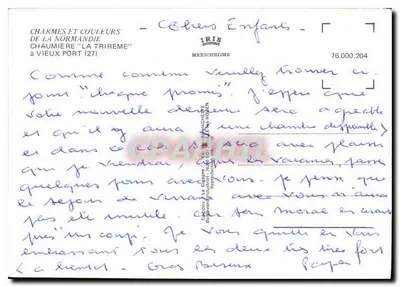 - Chers Enfants -
CHARMES ET COULEURS
DE LA NORMANDIE
CHAUMIERE "LA TRIREME"
à VIEUX PORT (27)
IRIS
MEXICHROME
76.000.204
Comme convenu veuillez trouver ci
joint "chèque promis". J'espère que
votre nouvelle demeure sera agréable
et qu'il y aura (une chambre disponible)
et dans ce cas se sera avec plaisir
que je viendrai, aux vacances, passer
quelques jours avec vous. Je pense que
le séjour de avec vous n'aura
pas été inutile. Son moral en avait
pris "un coup". Je vous quitte en vous
embrassant tous les deux très très fort
à bientôt. Gros Baisers Papa